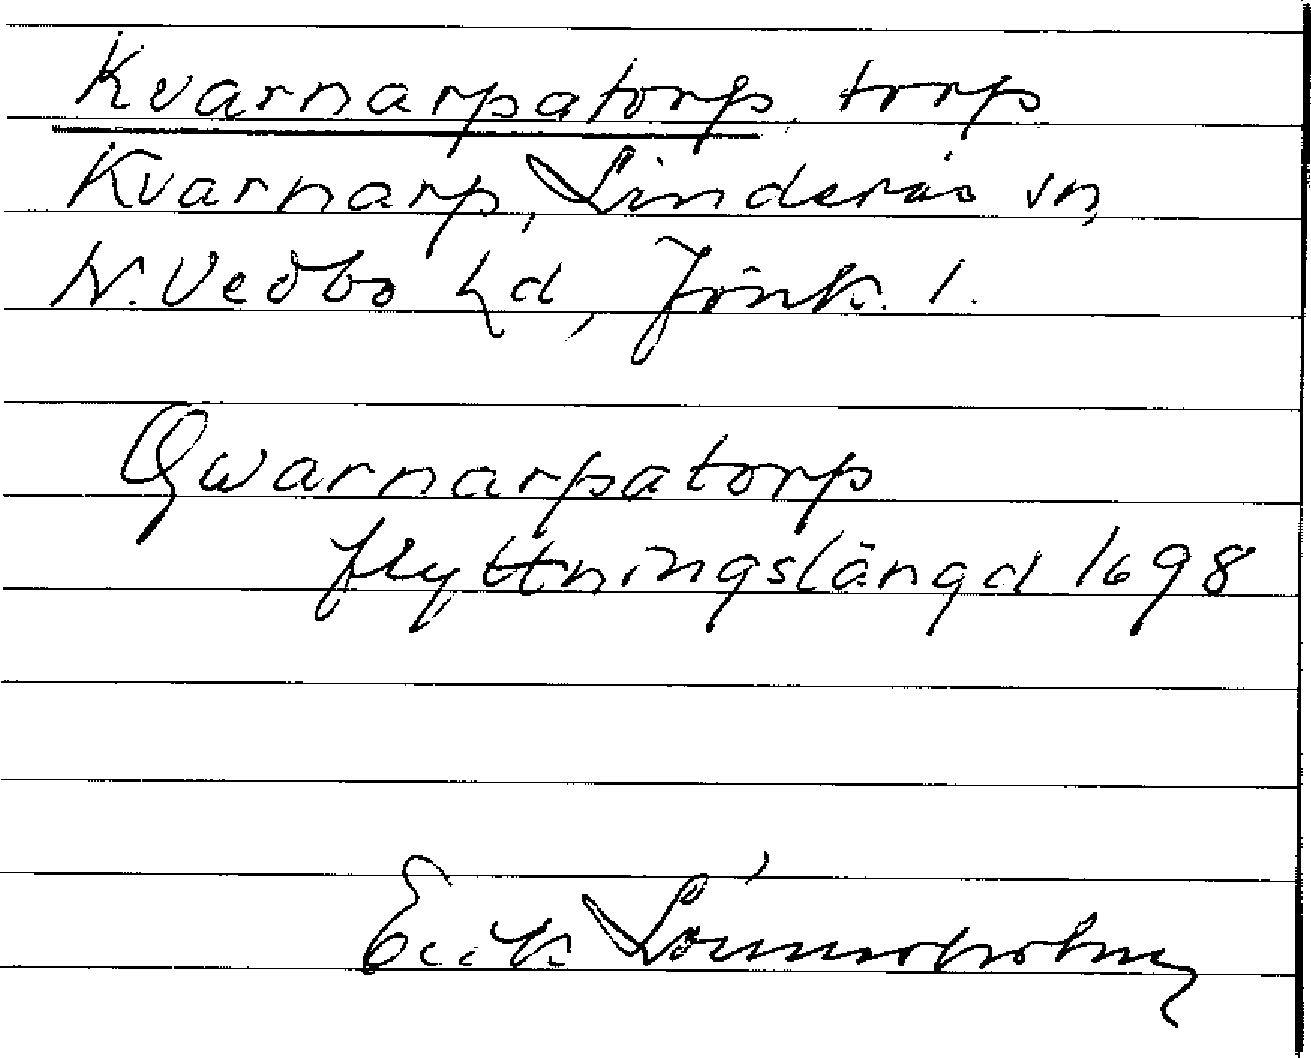 Kvarnarpatorp, torp
Kvarnarp, Linderås sn,
N. Vedbo hd, Jönk. l.
Qwarnarpatorp
flyttningslängd 1698
Erik Lönnerholm